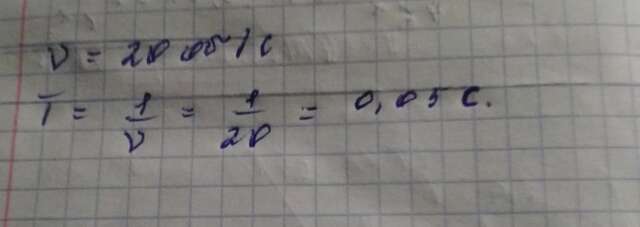 ν = 20 об/с
T = 1/ν = 1/20 = 0,05 с.